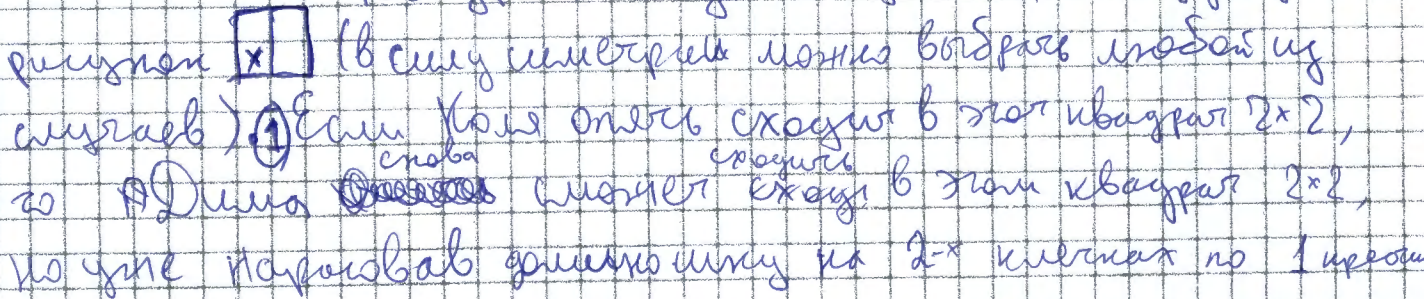 рисунок x (в силу симетрии можно выбрать любой из
случаев). 1 Если Коля опять сходит в этот квадрат 2×2,
то Дима снова сможет сходить в этом квадрат 2×2,
но уже нарисовав доминошку на 2-х клетках по 1